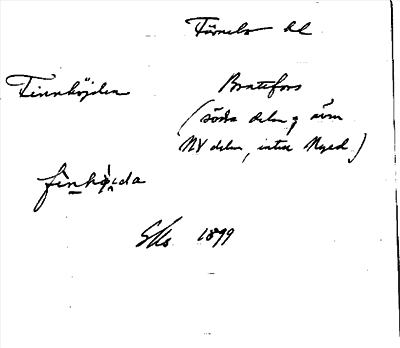 Färnebo hd
Finnhöjden Brattefors
(södra delen, även
NV delen, intill Nyed)
finhöida
SOs 1899